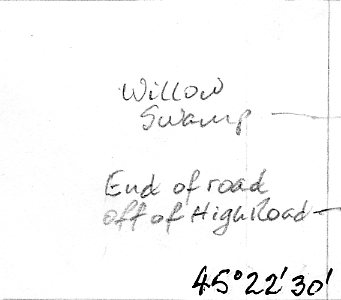 Willow
Swamp
End of road
off of High Road
45°22'30'